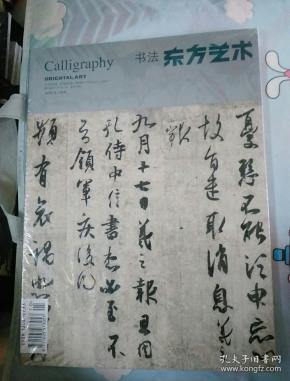 Calligraphy
ORIENTAL ART
书法 东方艺术
憂懸不能須臾忘
故旦遣取消息羲
報
九月十七日羲之報且因
孔侍中信書想必至不
知領軍疾後問
頻有哀禍
孔夫子旧书网